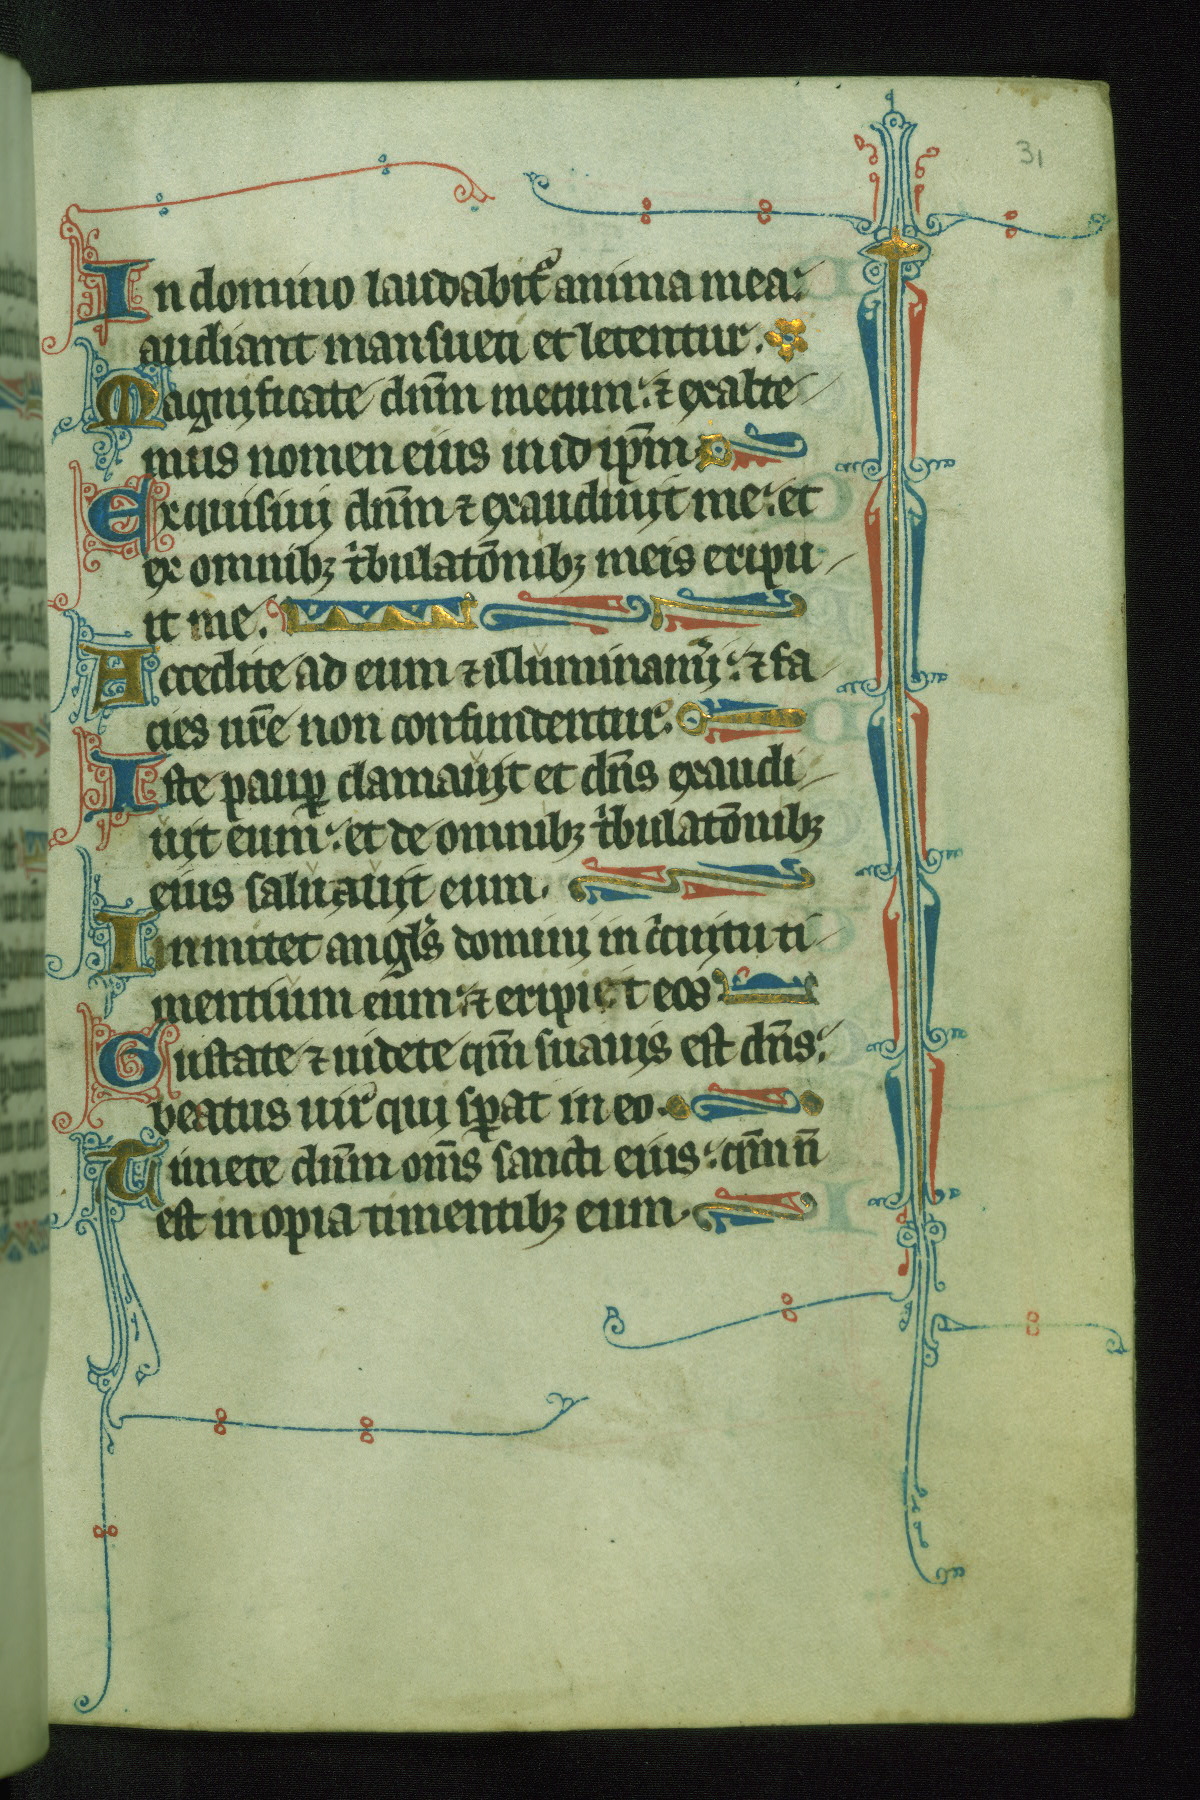 31
In domino laudabit᷑ anima mea:
audiant mansueti et letentur.
Magnificate dn̄m mecum: ⁊ exalte
mus nomen eius in id ip̄m
Exquisiui dn̄m ⁊ exaudiuit me: et
ex omnibꝫ tⁱbulatōnibꝫ meis eripu
it me.
Accedite ad eum ⁊ illuminamĩ: ⁊ fa
cies ur̄e non confundentur.
Iste paup̱ clamauit et dn̄s exaudi
uit eum: et de omnibꝫ tⁱbulatōnibꝫ
eius saluauit eum.
Inmittet angl̓s domini in cⁱcuitu ti
mentium eum: ⁊ eripiet eos
Gustate ⁊ uidete qm̄ suauis est dn̄s:
beatus uir qui sp̱at in eo.
Timete dn̄m om̄s sancti eius: qm̄ n̄
est inopia timentibꝫ eum.